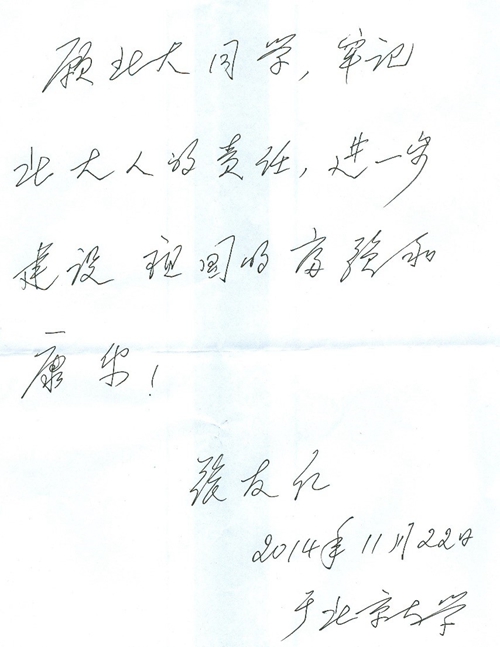 愿北大同学，牢记
北大人的责任，进一步
建设祖国的富强和
康乐！
張友仁
2014年11月22日
于北京大学